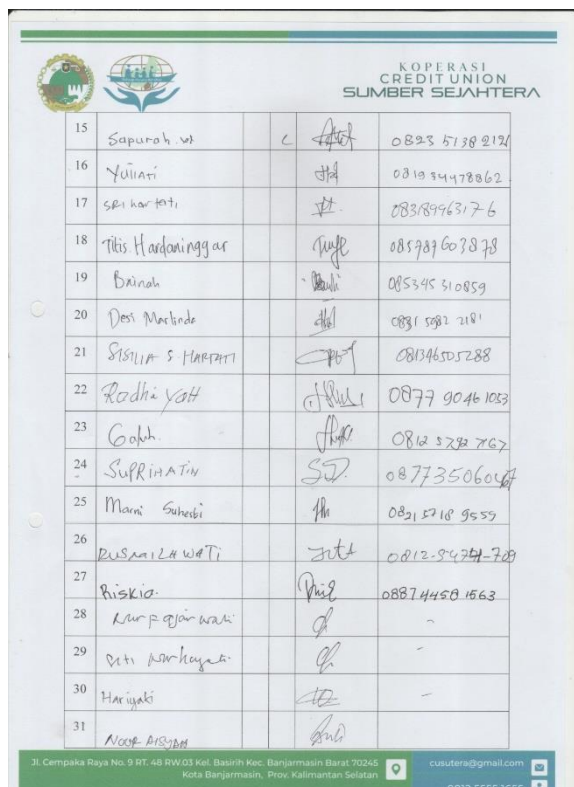 KOPERASI
CREDIT UNION
SUMBER SEJAHTERA
15 Sapurah. wt C 0823 5138 2121
16 Yuliati 0819 34478862
17 SRI hartati 083189963176
18 Titis Hardaninggar 085787603878
19 Bainah 085345310859
20 Desi Marlinda 0881 5082 2181
21 SISILIA S. HARTATI 081346505288
22 Rodhi Yatt 0877 9046 1053
23 Galuh. 0812 5792 7167
24 SUPRIHATIN
25 Marni Suherbi 0821 5718 9559
26 RUSMAILAWATI
27 Riskia. 0887 4458 1563
28 Nurpajarwati -
29 Siti Nurhayati -
30 Hariyati -
31 NOOR AISYAH
Jl. Cempaka Raya No. 9 RT. 48 RW.03 Kel. Basirih Kec. Banjarmasin Barat 70245
Kota Banjarmasin, Prov. Kalimantan Selatan
cusutera@gmail.com